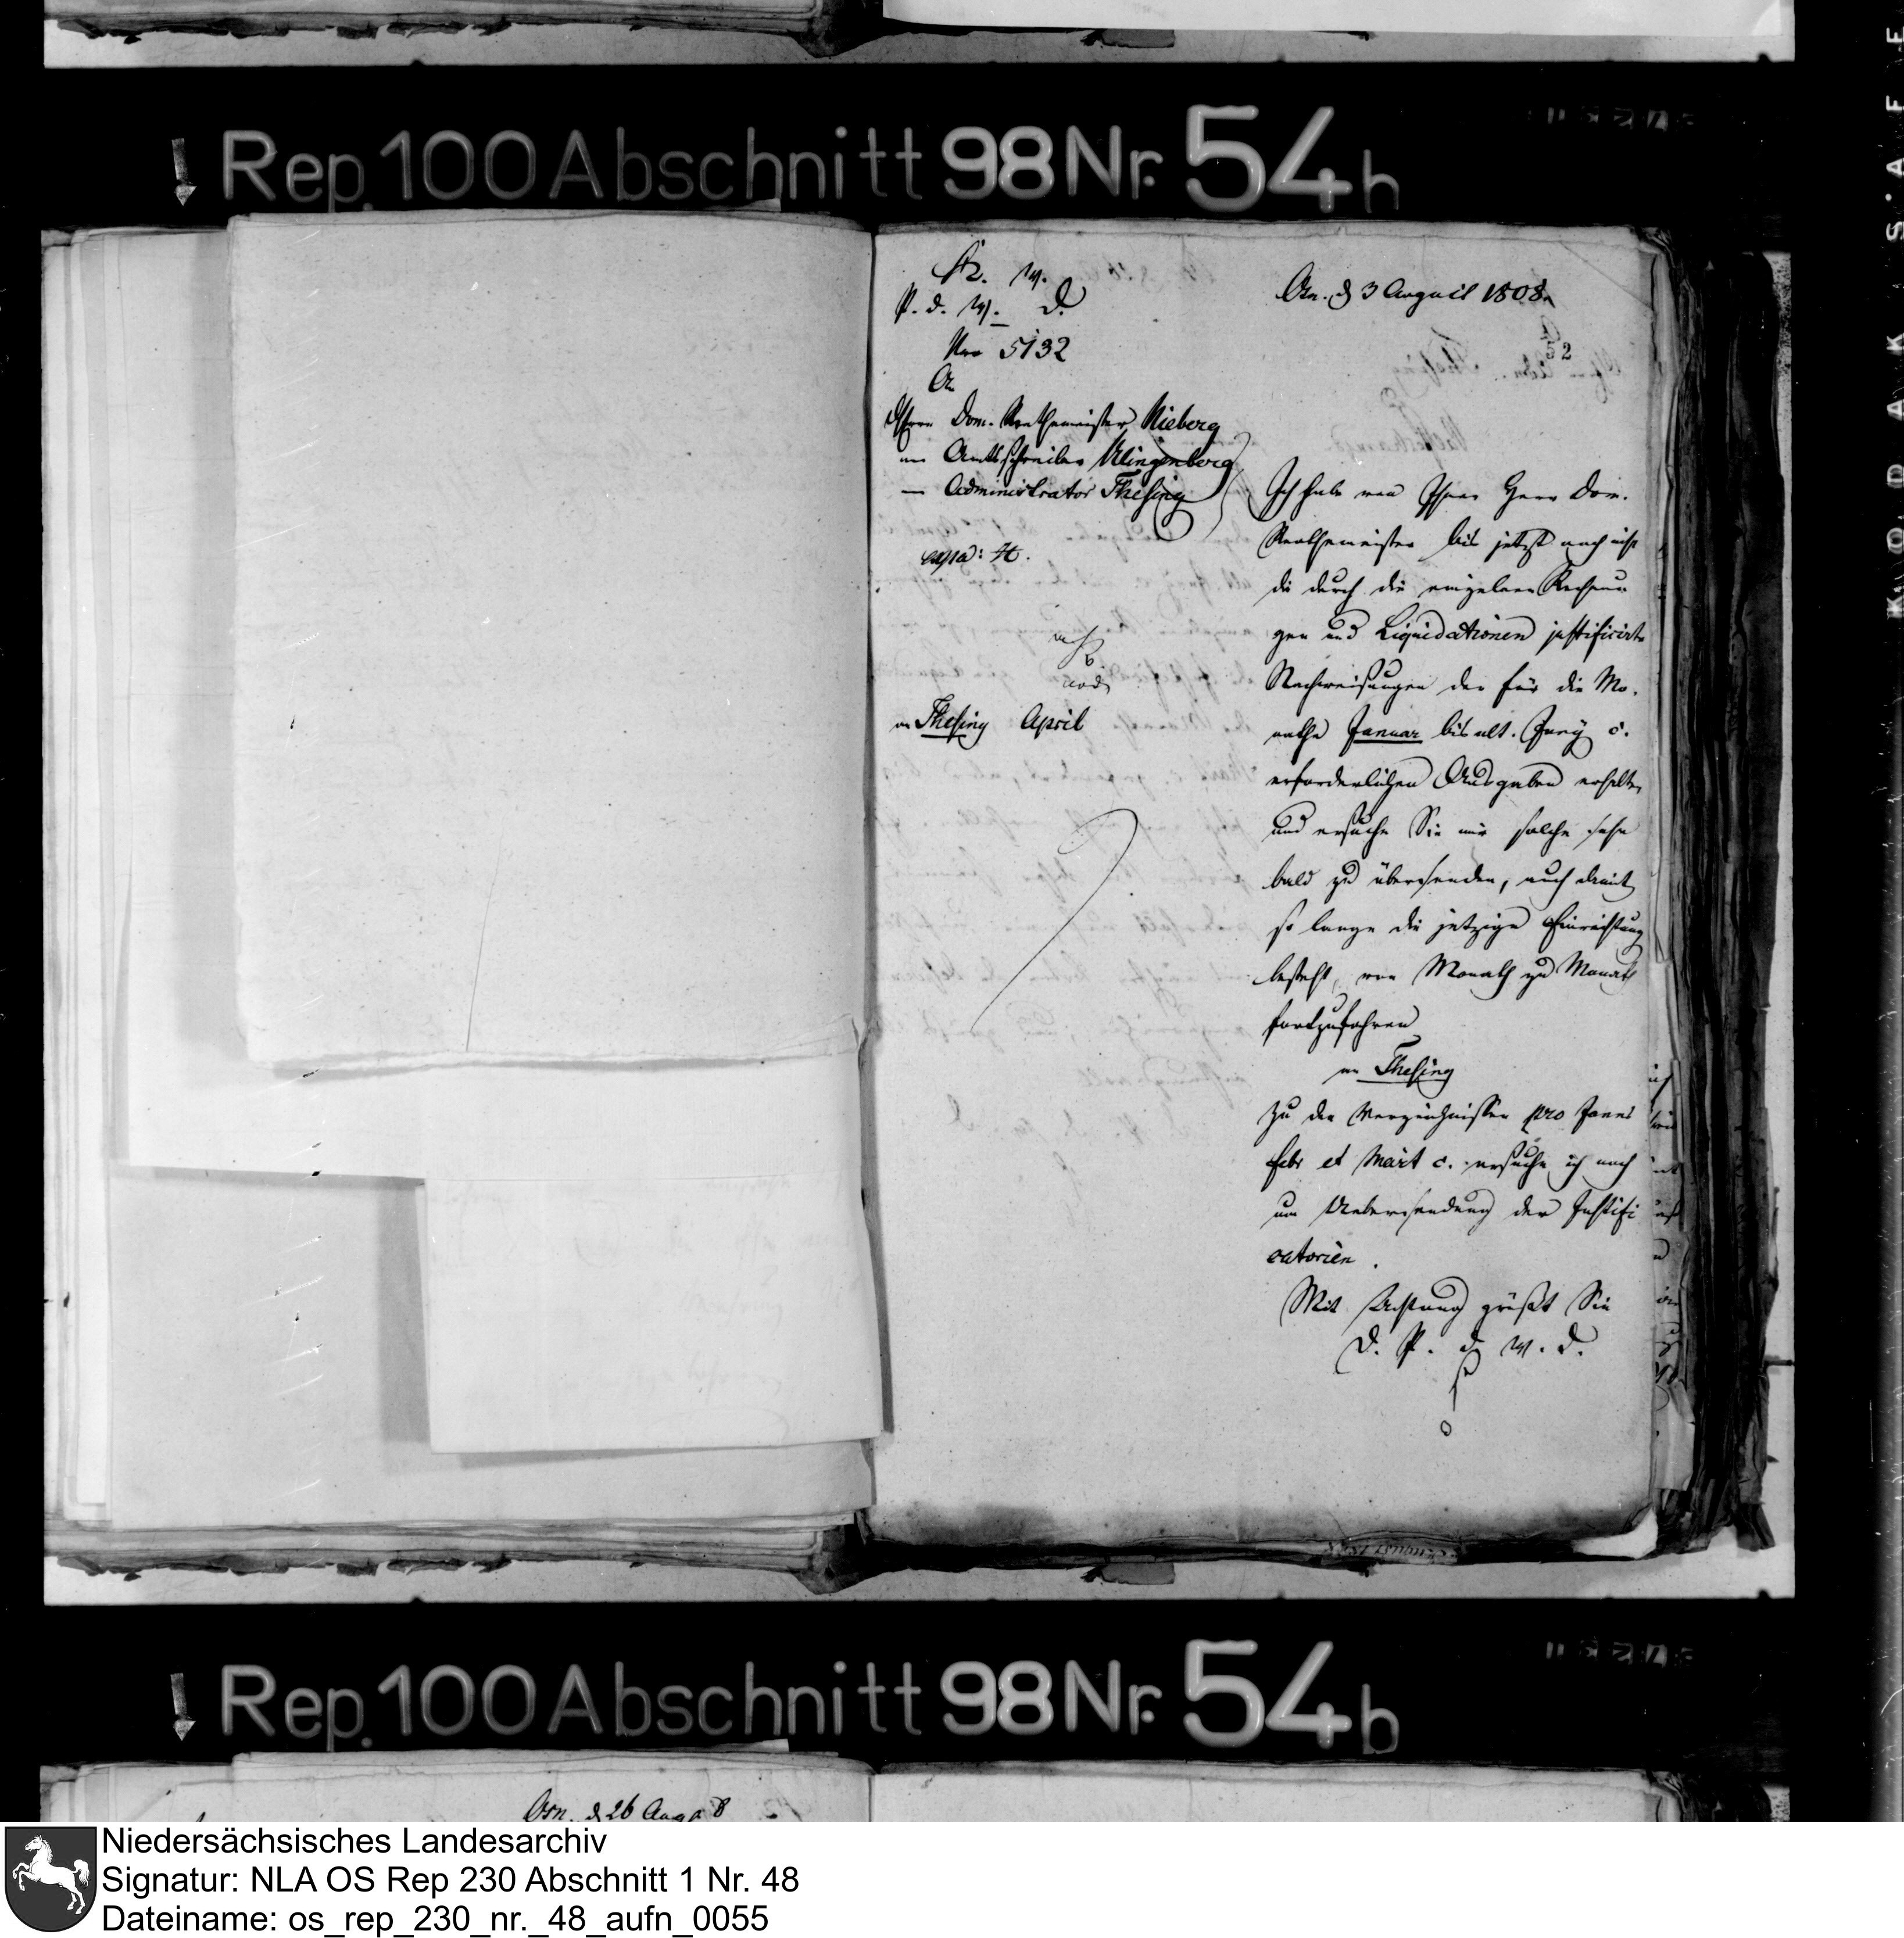 Rep. 100 Abschnitt 98 Nr. 54 h
K. W.
P. d. W. D.
Nro 5132
An
Herrn Dom. Renthemeister Nieberg
— Amtsschreiber Klingenberg
— Administrator Thesing
expd: H.
Osn. d 3 August 1808.
52
Ich habe von Ihnen Herr Dom.
Renthemeister bis jetzt noch nicht
die durch die einzelnen Rechnun
gen und Liquidationen justificirte
Nachweisungen der für die Mo-
nathe Januar bis ult. Juny c.
erforderlichen Ausgaben erhalten
und ersuche Sie mir solche sehr
bald zu übersenden, auch damit
so lange die jetzige Einrichtung
besteht, von Monath zu Monath
fortzufahren
an Thesing April
an Thesing
Zu den Verzeichnissen pro Januar
Febr et Mart c. ersuche ich noch
um Uebersendung der Justifi
catorien.
Mit Achtung grüßt Sie
D. P. d. W. D.
Rep. 100 Abschnitt 98 Nr. 54 b
Osn. d 26 Aug 8
KODAK SAFE
Niedersächsisches Landesarchiv
Signatur: NLA OS Rep 230 Abschnitt 1 Nr. 48
Dateiname: os_rep_230_nr._48_aufn_0055